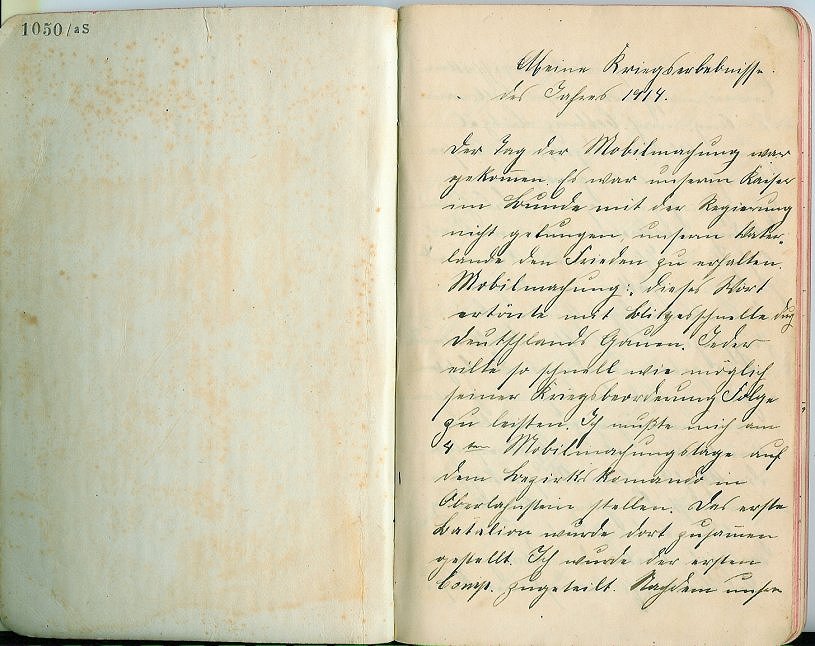 1050/aS
Meine Kriegserlebnisse
des Jahres 1914.
Der Tag der Mobilmachung war
gekom̄en. Es war unserm Kaiser
im Bunde mit der Regierung
nicht gelungen unserm Vater-
lande den Frieden zu erhalten.
Mobilmachung: dieses Wort
ertönte mit Blitzesschnelle
Deutschlands Gauen. Jeder
eilte so schnell wie möglich
seiner Kriegsbeorderung Folge
zu leisten. Ich mußte mich am
4ten Mobilmachungstage auf
dem Bezirks Komando in
Oberlahnstein stellen. Das erste
Batalion wurde dort zusam̄en
gestellt. Ich wurde der ersten
Comp. zugeteilt. Nachdem unser